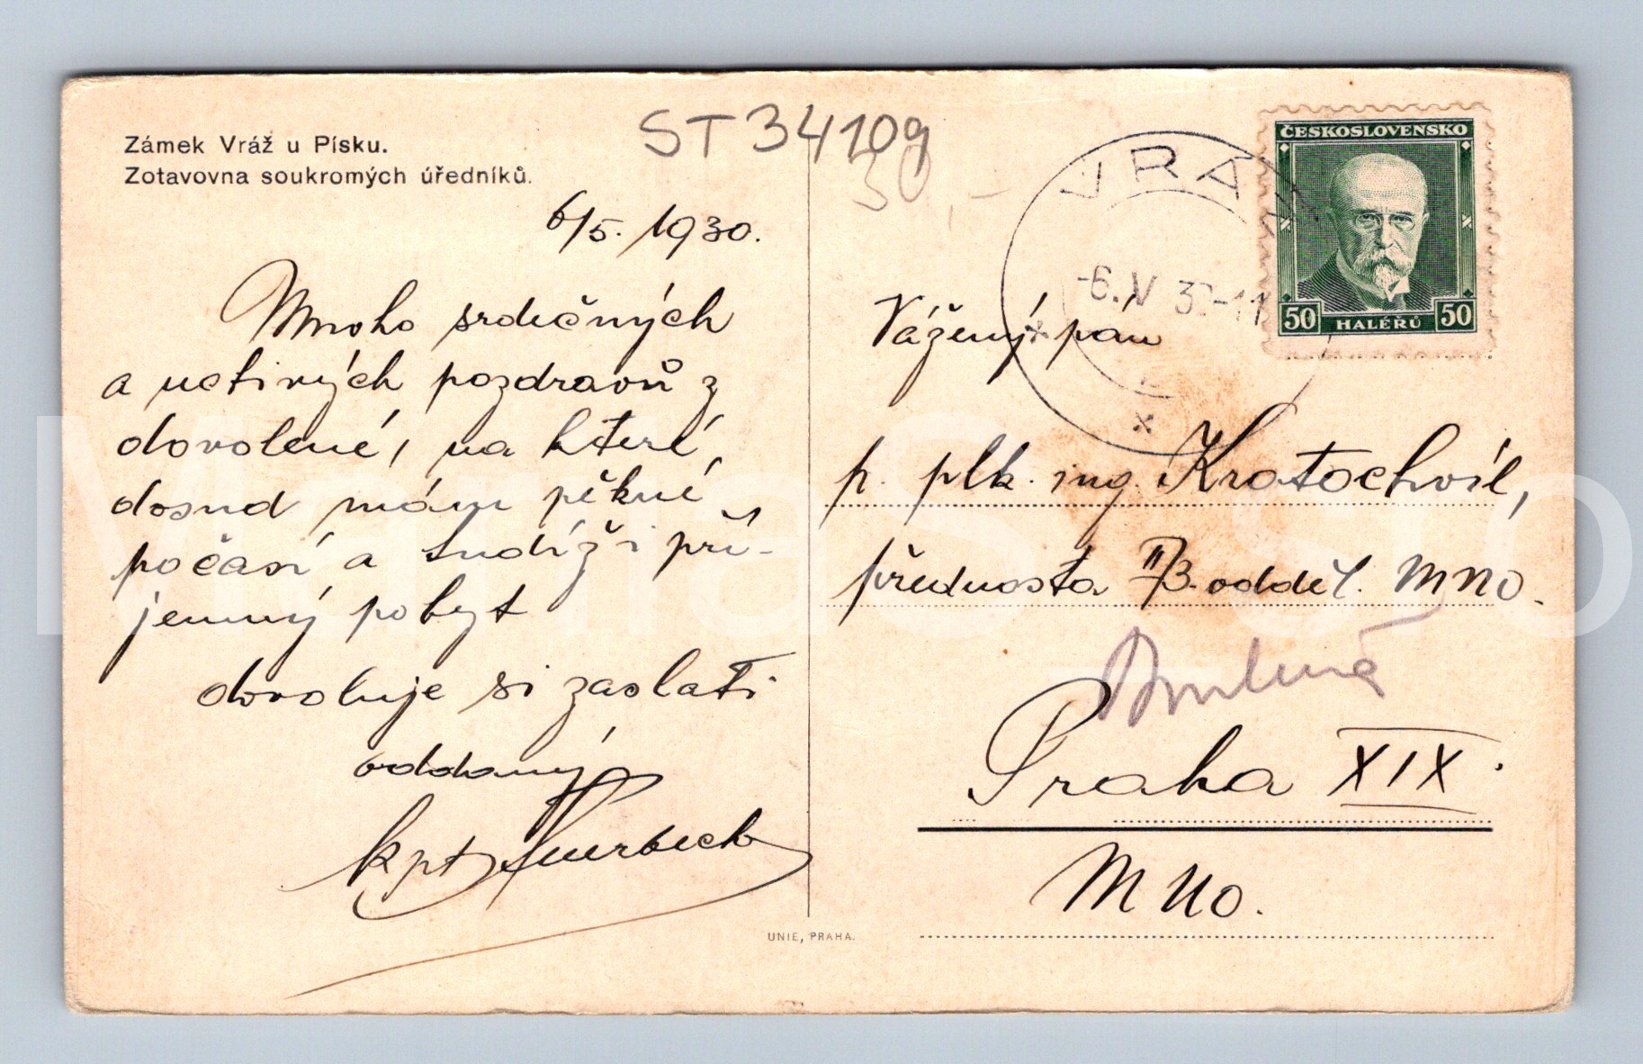 Zámek Vráž u Písku.
Zotavovna soukromých úředníků.
ST34109
30,-
6/5. 1930.
Mnoho srdečných
a uctivých pozdravů z
dovolené, na které
dosud mám pěkné
počasí a tudíž i pří-
jemný pobyt
dovoluje si zaslati
oddaný
kpt
VRÁŽ
-6.V 3 -11
ČESKOSLOVENSKO
50 HALÉŘŮ 50
Vážený pán
p. plk. ing. Kratochvíl,
přednosta II/3. odděl. MNO.
Praha XIX.
MNO.
UNIE, PRAHA.